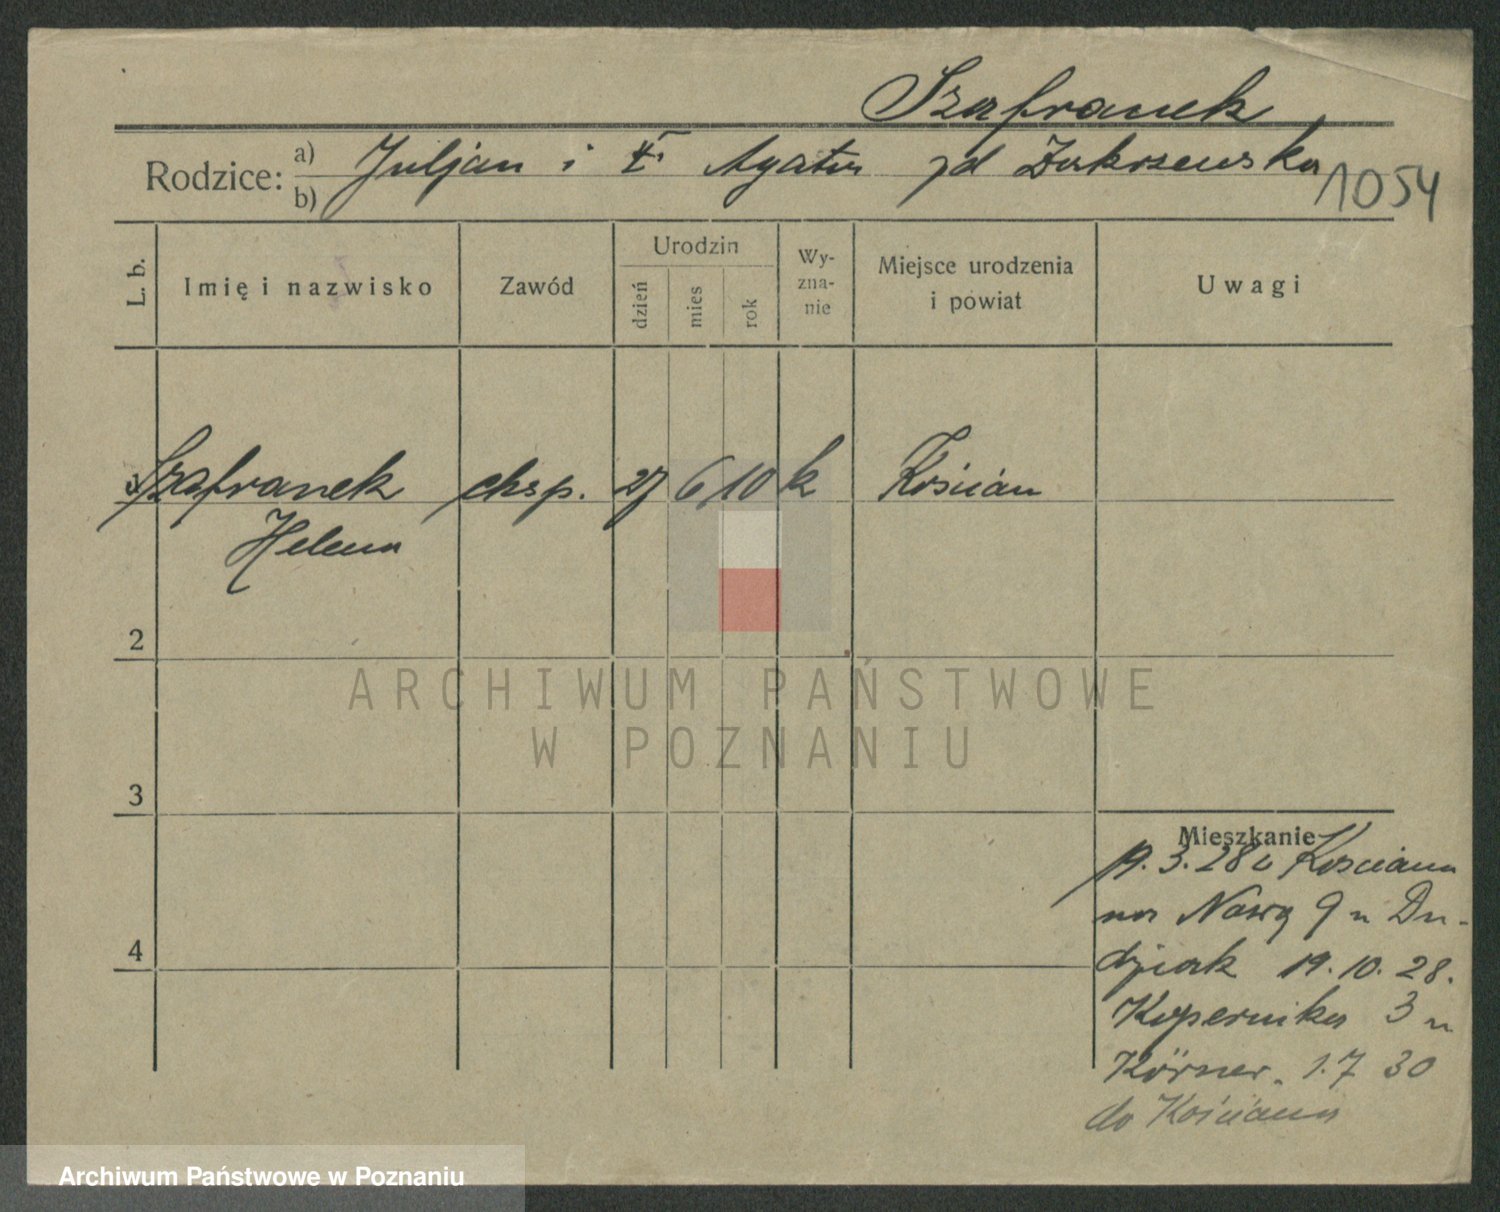 Szafranek
Rodzice: a) b) Juljan i Agata zd Zakrzewska
1054
L. b. Imię i nazwisko Zawód Urodzin dzień mies rok Wy-zna-nie Miejsce urodzenia i powiat Uwagi
Szafranek eksp. 27 6 10 k Kościan
Helena
2
ARCHIWUM PAŃSTWOWE
W POZNANIU
3
Mieszkanie
19. 3. 28 z Kościana
na Nową 9 u Du-
dziak 19. 10. 28.
4
Kopernika 3 u
Körner. 1. 7 30
do Kościana
Archiwum Państwowe w Poznaniu